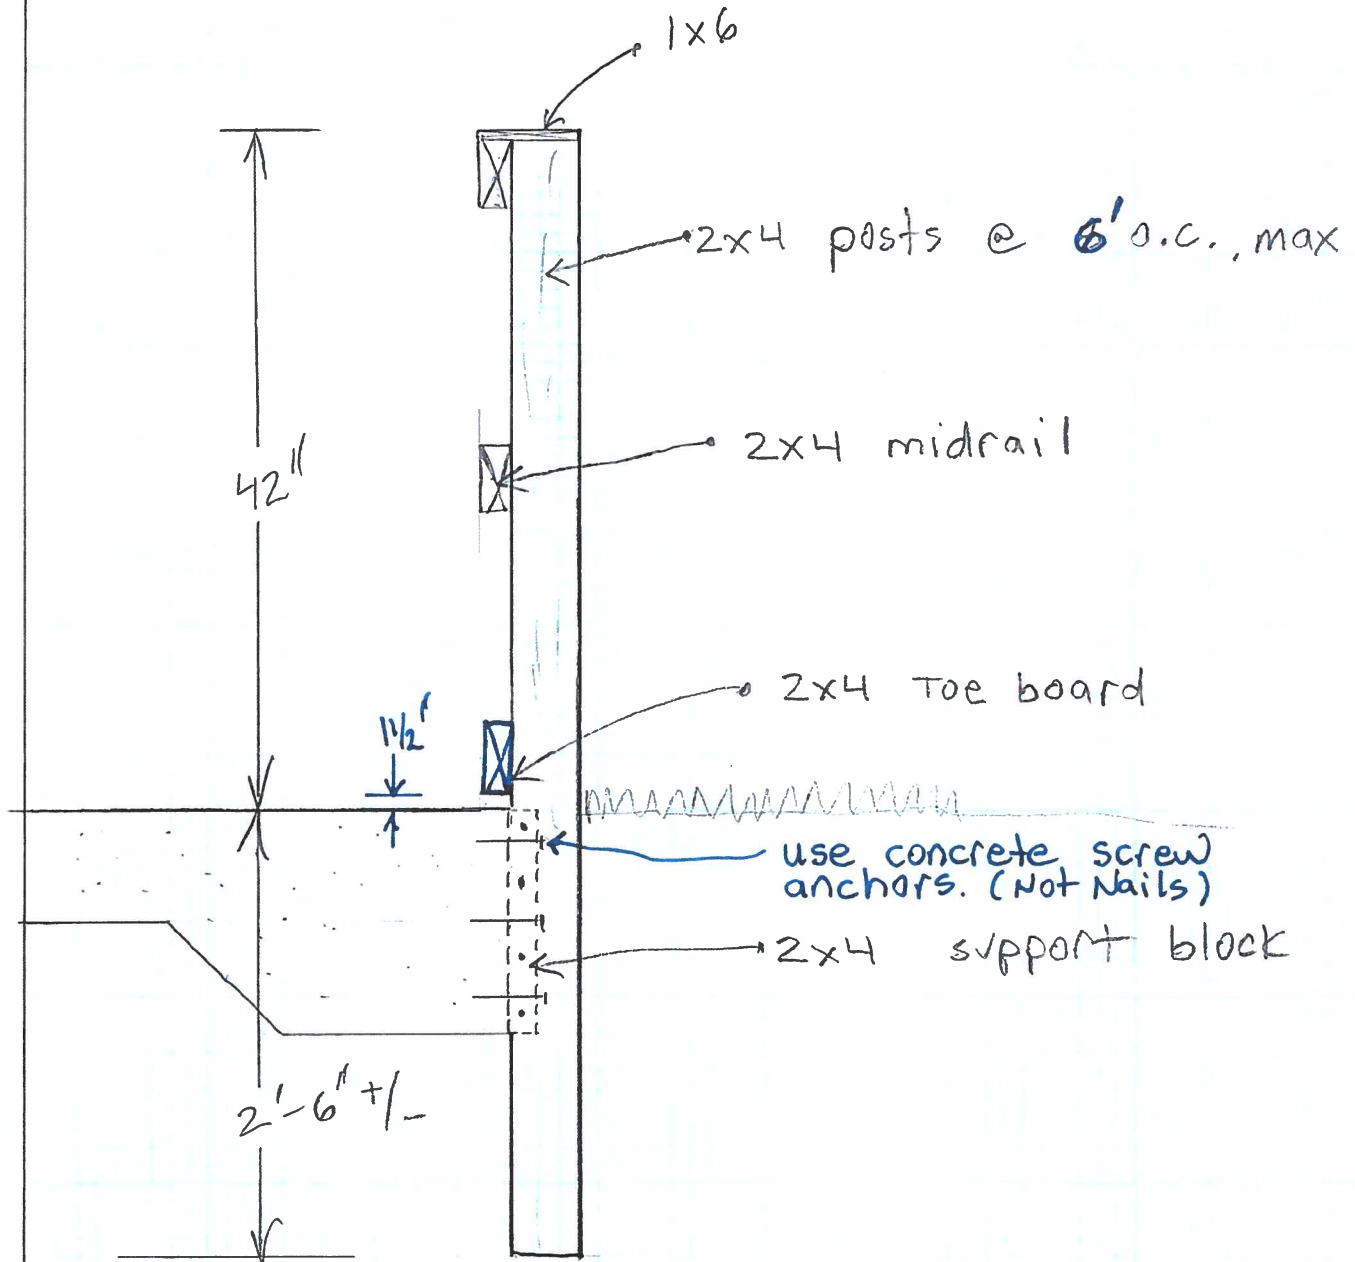 1x6
2x4 posts @ 6' o.c., max
2x4 midrail
42"
2x4 Toe board
1 1/2"
use concrete screw
anchors. (Not Nails)
2x4 support block
2'-6" +/-